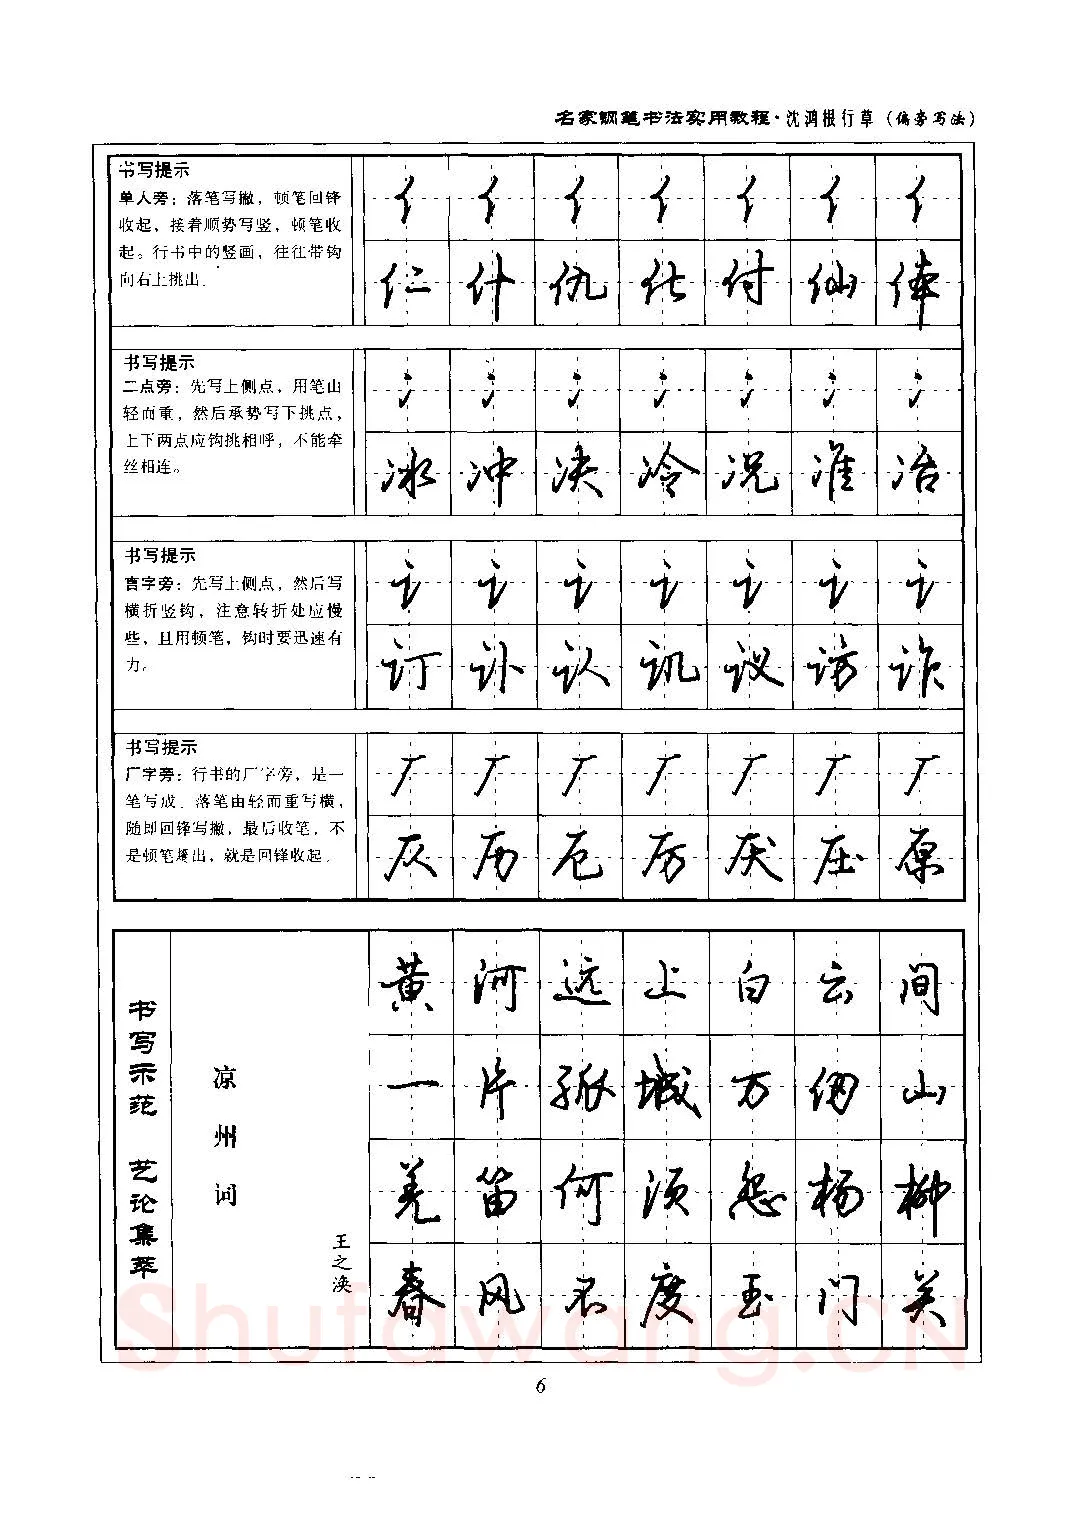 名家钢笔书法实用教程·沈鸿根行草（偏旁写法）
书写提示
单人旁：落笔写撇，顿笔回锋
收起，接着顺势写竖，顿笔收
起。行书中的竖画，往往带钩
向右上挑出.
亻 亻 亻 亻 亻 亻 亻
仁 什 仇 化 付 仙 体
书写提示
二点旁：先写上侧点，用笔由
轻而重，然后承势写下挑点，
上下两点应钩挑相呼，不能牵
丝相连。
冫 冫 冫 冫 冫 冫 冫
冰 冲 决 冷 况 准 冶
书写提示
言字旁：先写上侧点，然后写
横折竖钩，注意转折处应慢
些，且用顿笔，钩时要迅速有
力。
讠 讠 讠 讠 讠 讠 讠
订 讣 认 讥 议 访 诈
书写提示
厂字旁：行书的厂字旁，是一
笔写成.落笔由轻而重写横，
随即回锋写撇，最后收笔，不
是顿笔撇出，就是回锋收起.
厂 厂 厂 厂 厂 厂 厂
仄 历 厄 厉 厌 压 原
书写示范 艺论集萃
凉州词
王之涣
黄河远上白云间
一片孤城万仞山
羌笛何须怨杨柳
春风不度玉门关
Shufawang.CN
6